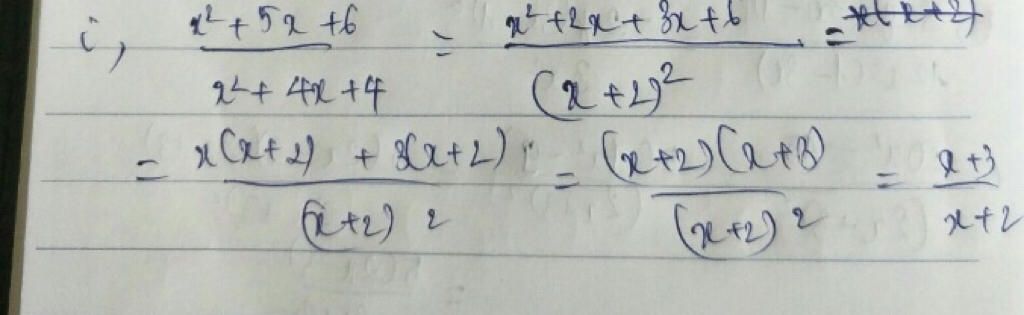 i, x² + 5x + 6 / x² + 4x + 4 = x² + 2x + 3x + 6 / (x + 2)² = x(x + 2)
= x(x + 2) + 3(x + 2) / (x + 2) 2 = (x + 2)(x + 3) / (x + 2) 2 = x + 3 / x + 2